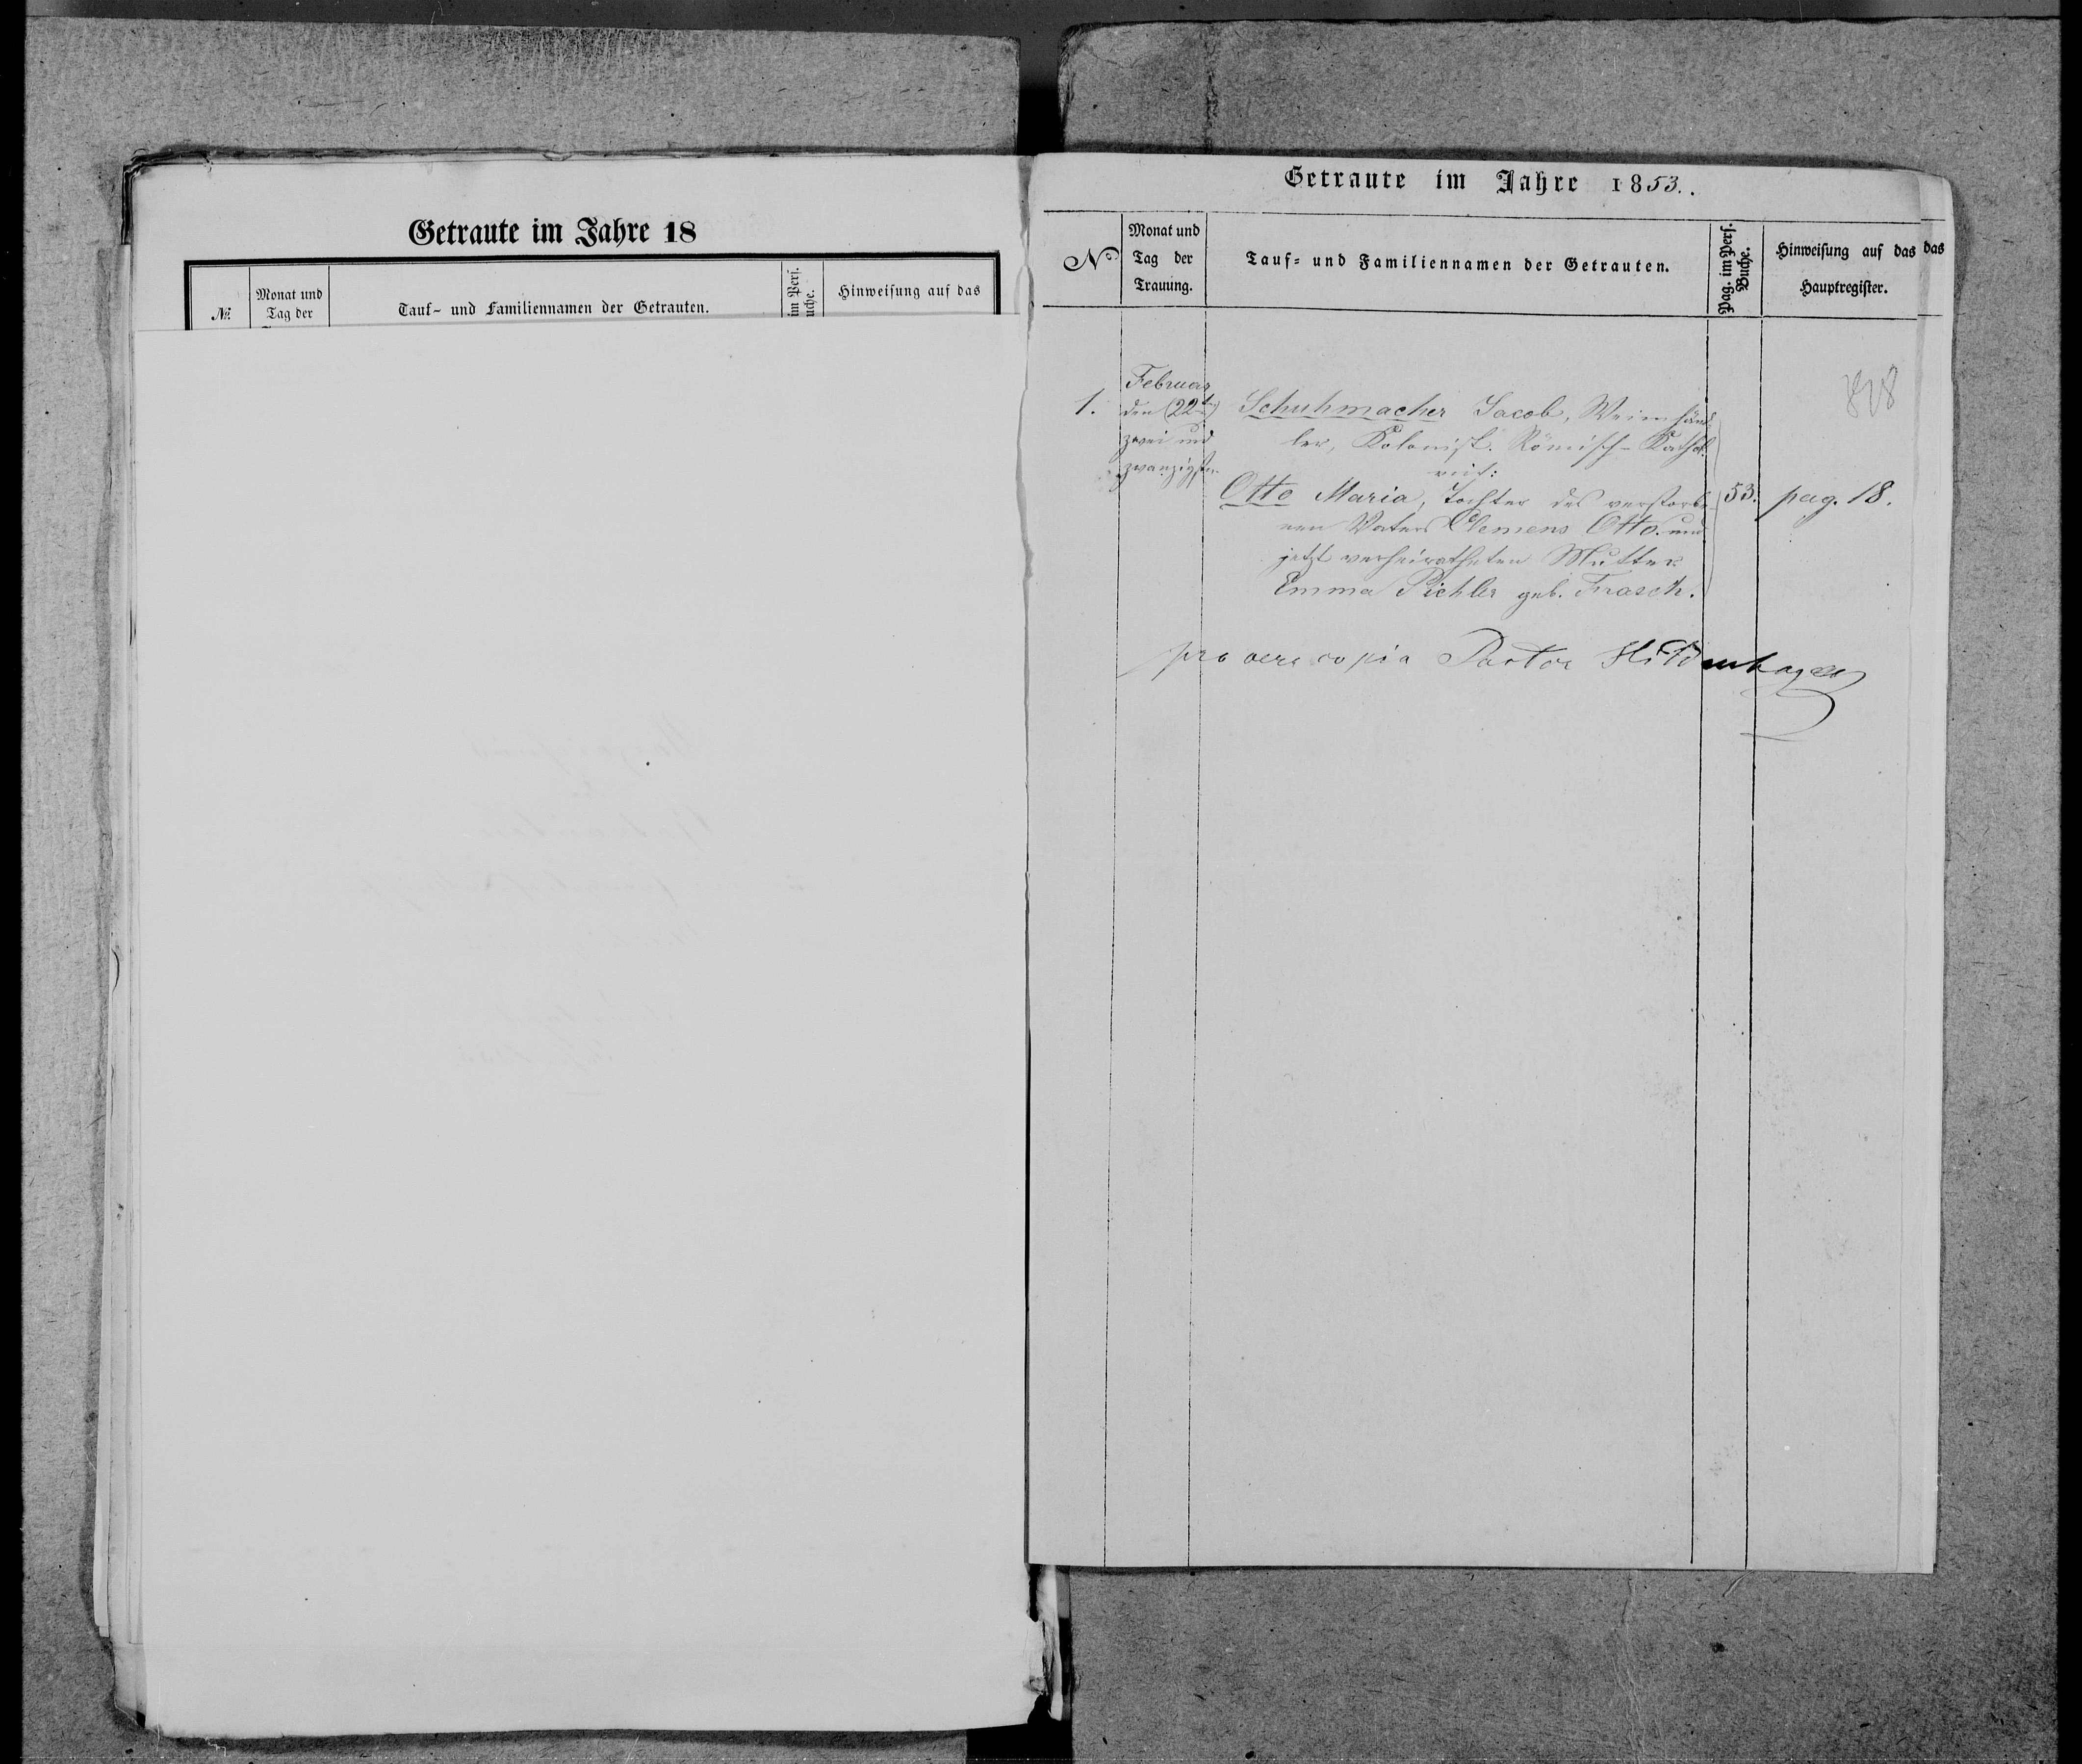 Getraute im Jahre 18
№.
Monat und
Tag der
Tauf- und Familiennamen der Getrauten.
im Pers.
uche.
Hinweisung auf das
Getraute im Jahre 1853.
No
Monat und
Tag der
Trauung.
Tauf- und Familiennamen der Getrauten.
Pag. im Pers.
Buche.
Hinweisung auf das das
Hauptregister.
1.
Februar
den (22ten)
zwei und
zwanzigsten
Schuhmacher Jacob, Weinhänd-
ler, Kolonist. Römisch-Kathol.
mit:
Otto Maria, Tochter des verstorbe-
nen Vaters Clemens Otto und
jetzt verheiratheten Mutter
Emma Pichler geb. Frasch.
53.
pag. 18.
pro vera copia Pastor Hildenhagen